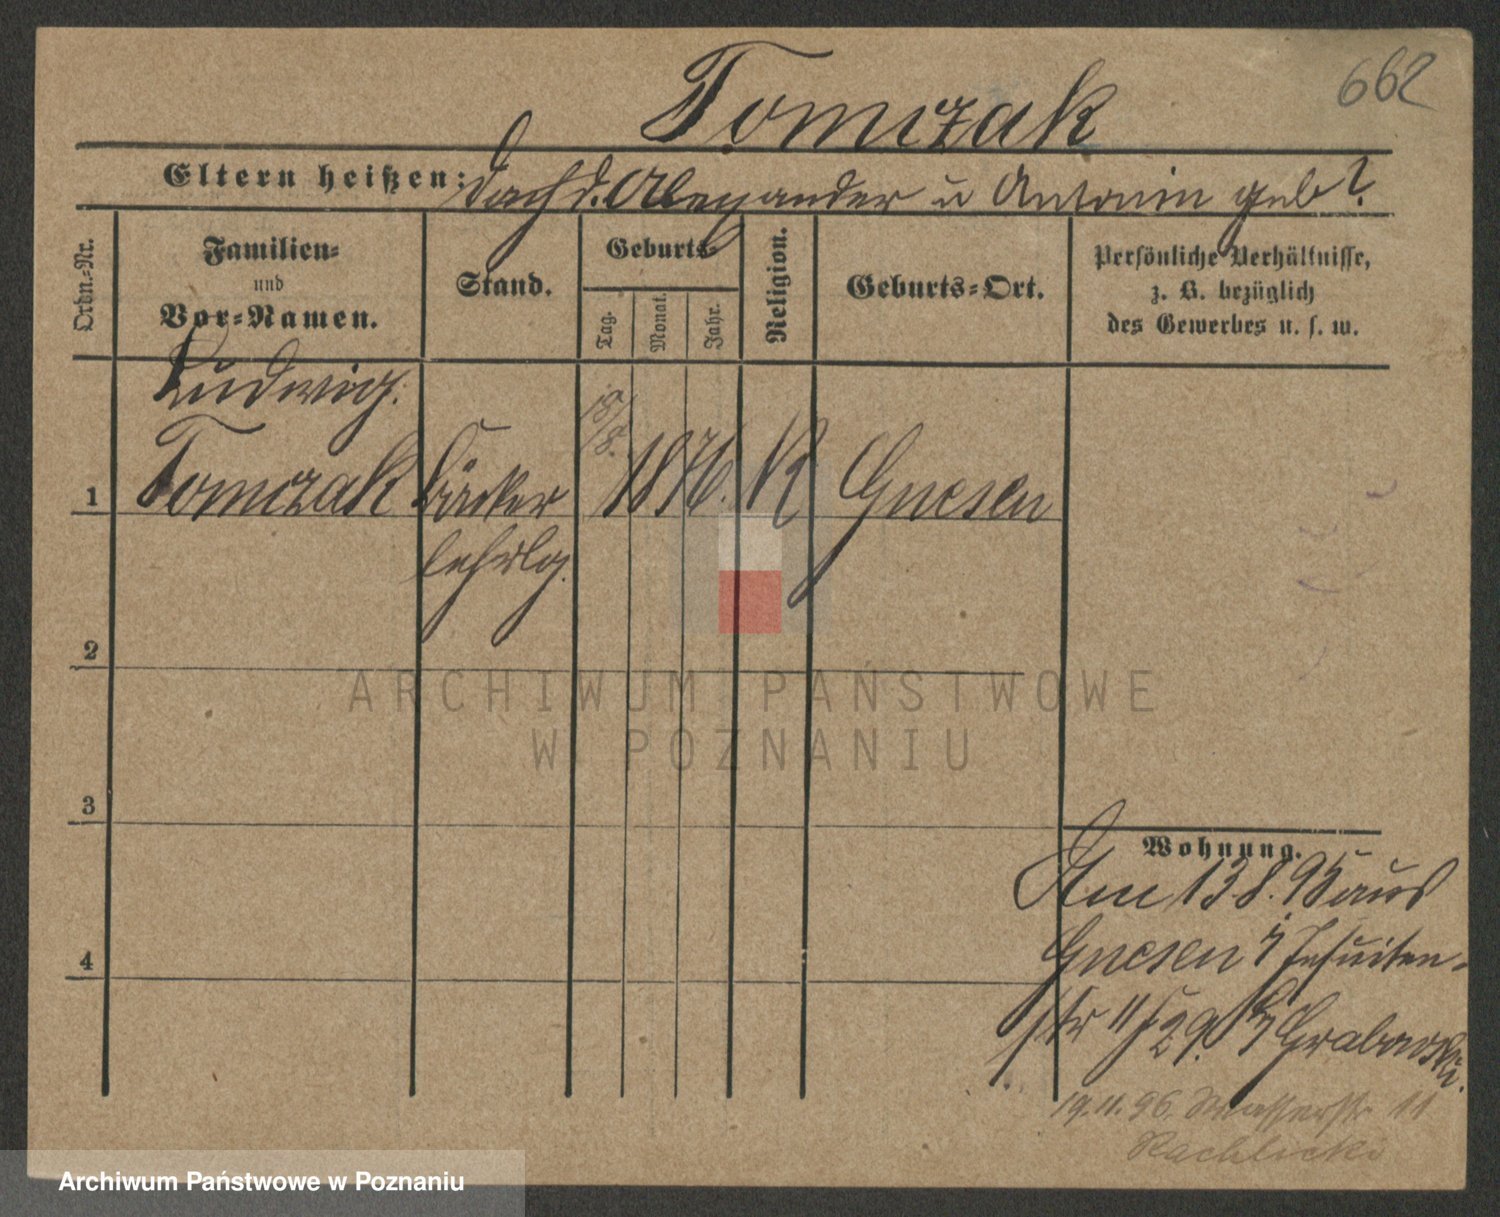 Tomczak
662
Eltern heißen: d. Alexander u Antonin geb?
Ordn.-Nr.
Familien-
und
Vor-Namen.
Stand.
Geburts-
Tag.
Monat.
Jahr.
Religion.
Geburts-Ort.
Persönliche Verhältnisse,
z. B. bezüglich
des Gewerbes u. s. w.
Ludwig
1 Tomczak Bäcker 18/8. 1876. K Gnesen
lehrlg.
2
3
4
Wohnung.
Am 13.8.95 aus
Gnesen Jesuiten-
str 11 Grabowski.
19.11.96. Wasserstr 11
Rachlicki
ARCHIWUM PAŃSTWOWE
W POZNANIU
Archiwum Państwowe w Poznaniu